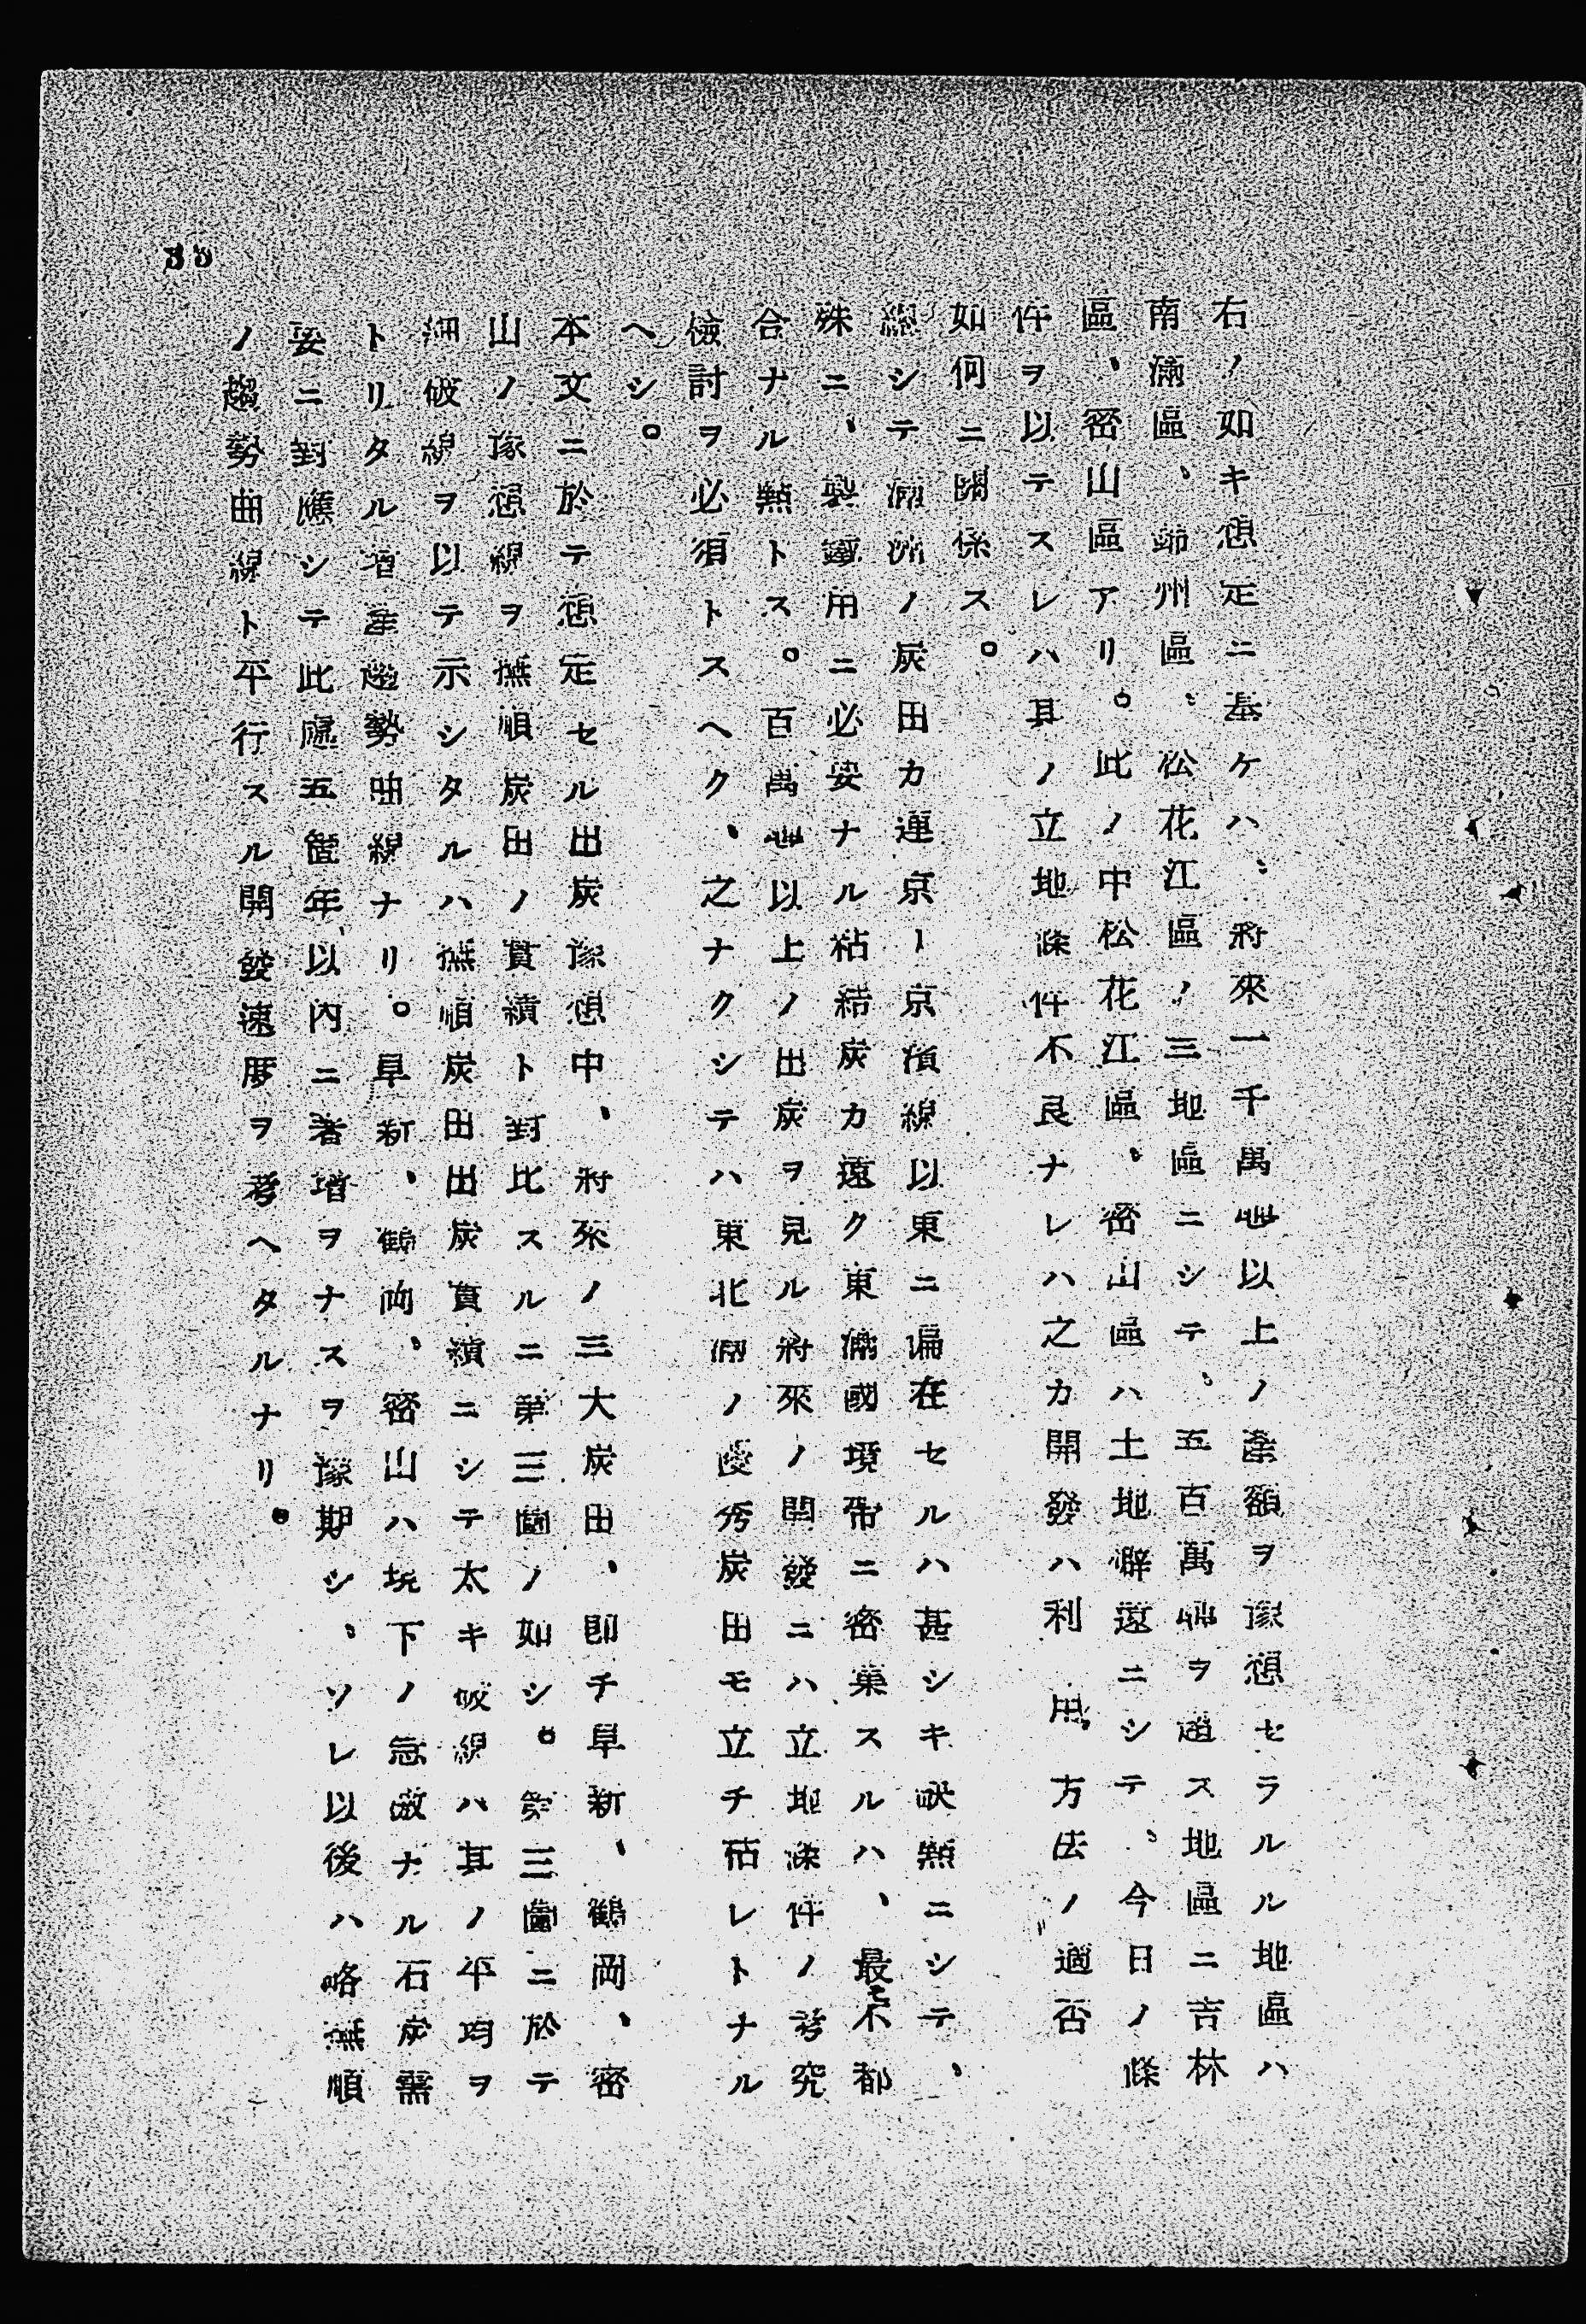 右ノ如キ想定ニ基ケハ、將來一千萬瓲以上ノ產額ヲ豫想セラルル地區ハ
南滿區、錦州區、松花江區ノ三地區ニシテ、五百萬瓲ヲ超ス地區ニ吉林
區、密山區アリ。此ノ中松花江區、密山區ハ土地僻遠ニシテ、今日ノ條
件ヲ以テスレハ其ノ立地條件不良ナレハ之カ開發ハ利用方法ノ適否
如何ニ關係ス。
總シテ滿洲ノ炭田カ連京ー京濱線以東ニ偏在セルハ甚シキ缺點ニシテ、
殊ニ、製鐵用ニ必要ナル粘結炭カ遠ク東滿國境帶ニ密集スルハ、最モ不都
合ナル點トス。百萬瓲以上ノ出炭ヲ見ル將來ノ開發ニハ立地條件ノ考究
檢討ヲ必須トスヘク、之ナクシテハ東北滿ノ優秀炭田モ立チ枯レトナル
ヘシ。
本文ニ於テ想定セル出炭豫想中、將來ノ三大炭田、卽チ阜新、鶴岡、密
山ノ豫想線ヲ撫順炭田ノ實績ト對比スルニ第三圖ノ如シ。第三圖ニ於テ
細破線ヲ以テ示シタルハ撫順炭田出炭實績ニシテ太キ破線ハ其ノ平均ヲ
トリタル增產趨勢曲線ナリ。阜新、鶴岡、密山ハ現下ノ急激ナル石炭需
要ニ對應シテ此處五箇年以內ニ著增ヲナスヲ豫期シ、ソレ以後ハ略撫順
ノ趨勢曲線ト平行スル開發速度ヲ考ヘタルナリ。